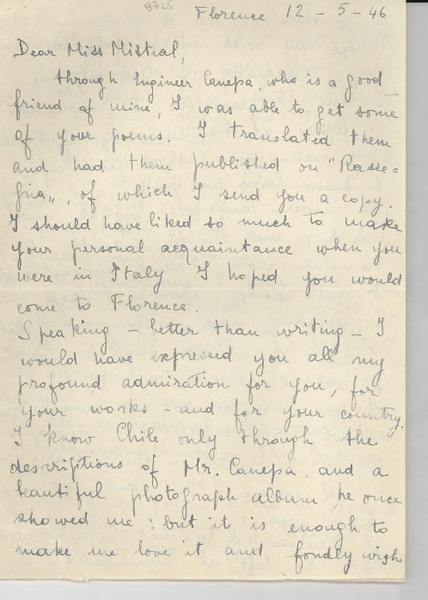 8725
Florence 12-5-46
Dear Miss Mistral,
through Engineer Canepa, who is a good
friend of mine, I was able to get some
of your poems. I translated them
and had them published on "Rasse-
gna„, of which I send you a copy.
I should have liked so much to make
your personal acquaintance when you
were in Italy. I hoped you would
come to Florence.
Speaking - better than writing - I
would have expressed you all my
profound admiration for you, for
your works - and for your country.
I know Chile only through the
descriptions of Mr. Canepa, and a
beautiful photograph album he once
showed me: but it is enough to
make me love it and fondly wish